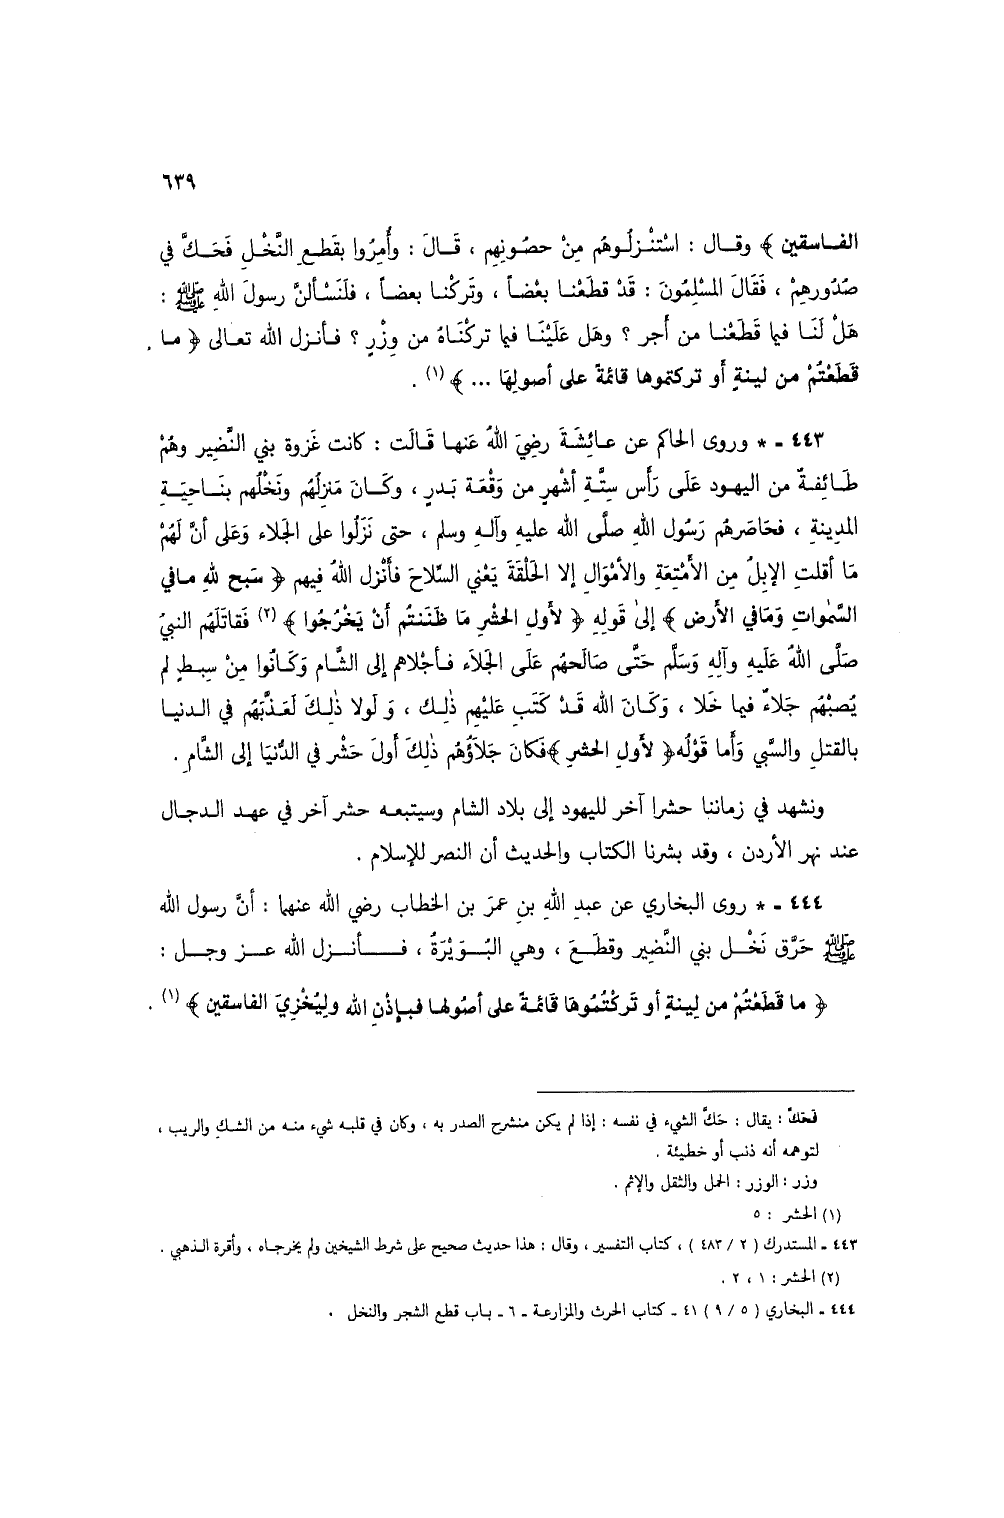 ٦٣٩
الفـاسقين ﴾ وقـال : اسْتَنْـزلُـوهُم مِنْ حصُونِهِم ، قَـالَ : وأُمِرُوا بقَطـعِ النَّخْـلِ فَحَـكَّ في
صُدُورهِمْ ، فَقَالَ المُسْلِمُونَ : قَدْ قطَعْنـا بعْضـاً ، وتَركْنـا بعضـاً ، فلَنَسْألنَّ رسولَ اللهِ ﷺ :
هَلْ لَنَـا فيما قَطَعْنـا من أجر ؟ وهَل عَلَيْنَـا فيما تركْنَـاهُ من وِزْرٍ ؟ فـأنـزل الله تعـالى ﴿ مـا
قَطَعْتُمْ من لينةٍ أو تركتموها قائمةً على أصولِهَا ... ﴾ (١) .
٤٤٣ ـ * وروى الحاكم عن عـائِشَةَ رضِيَ اللهُ عَنهـا قَـالَت : كانت غَزوة بني النَّضِير وهُمْ
طَـائِفةٌ من اليهود عَلَى رَأس سِتَّةِ أشْهرٍ من وَقْعَة بَـدرٍ ، وكَـانَ مَنزِلُهُم ونَخْلُهم بنَـاحِيَـةِ
المدينةِ ، فحَاصَرهُم رَسُول اللهِ صلَّى الله عليهِ وآلـهِ وسلم ، حتى نَزَلُوا على الجَلاء وَعَلى أنَّ لَهُمْ
مَا أقلتِ الإبلُ مِن الأمْتِعَةِ والأمْوَالِ إلا الحَلْقَةَ يَعْني السِّلاحَ فأَنْزل اللهُ فِيهم ﴿ سَبح للهِ مـافي
السَّمٰواتِ وَمَافي الأرض ﴾ إلىٰ قَولِهِ ﴿ لأولِ الحشْرِ مَا ظَنَنتُم أنْ يَخْرُجُوا ﴾ (٢) فَقاتَلَهُم النبيُ
صَلَّى اللهُ عَلَيهِ وآلِهِ وَسَلَّم حَتَّى صَالَحهُم عَلَى الجَلاَء فـأجْلاهم إلى الشَّام وَكَـانُوا مِنْ سِبـطٍ لم
يُصبْهُم جَلاءٌ فيما خَلا ، وَكَـانَ الله قَـدْ كَتَب عَلَيْهِم ذٰلِـك ، وَ لَولا ذٰلِـكَ لَعَـذَّبَهُم في الـدنيـا
بالقتلِ والسَّبي وَأَما قَوْلُه﴿ لأولِ الحشرِ ﴾فَكانَ جَلاَؤُهُم ذٰلِكَ أولَ حَشْر في الدُّنيَا إلى الشَّام .
ونشهد في زماننا حشرا آخر لليهود إلى بلاد الشام وسيتبعـه حشر آخر في عهـد الـدجال
عند نهر الأردن ، وقد بشرنا الكتاب والحديث أن النصر للإسلام .
٤٤٤ ـ * روى البخاري عن عبدِ اللهِ بنِ عمرَ بن الخطاب رضي الله عنهما : أنَّ رسول الله
ﷺ حَرَّق نَخْـل بني النَّضِير وقطَـعَ ، وهي البُـوَيْرَةُ ، فـــأنــزل الله عــز وجــل :
﴿ ما قَطَعْتُمْ من لِينةٍ أو تَركْتُمُوهَا قَائمَـةً على أصُولها فبـإذْنِ الله وليُخْزِيَ الفاسقين ﴾ (١) .
فَحَكَّ : يقال : حَكَّ الشيء في نفسه : إذا لم يكن منشرح الصدر به ، وكان في قلبـه شيء منـه من الشـك والريب ،
لتوهمه أنه ذنب أو خطيئة .
وزر : الوزر : الحمل والثقل والإثم .
(١) الحشر : ٥
٤٤٣ ـ المستدرك ( ٢ / ٤٨٣ ) ، كتاب التفسير ، وقال : هذا حديث صحيح على شرط الشيخين ولم يخرجـاه ، وأقرة الـذهبي .
(٢) الحشر : ١ ، ٢ .
٤٤٤ ـ البخاري ( ٥ / ٩ ) ٤١ ـ كتاب الحرث والمزارعـة ـ ٦ ـ بـاب قطع الشجر والنخل .